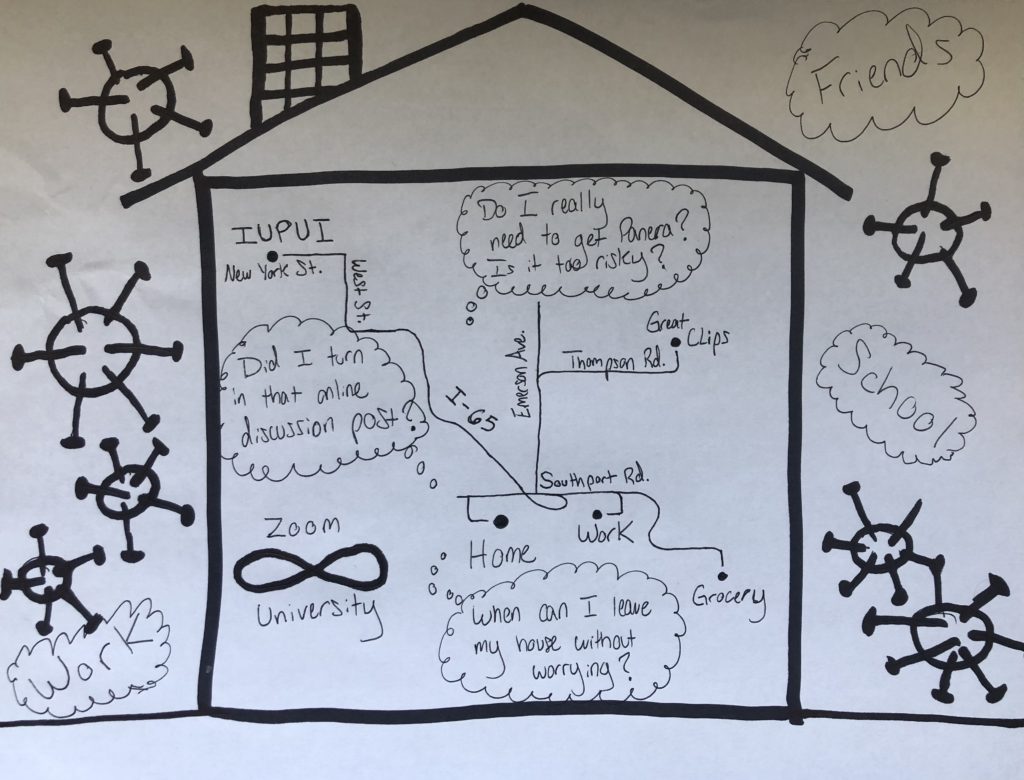 Friends
IUPUI
New York St.
West St.
Do I really
need to get Panera?
Is it too risky?
Great
Clips
Thompson Rd.
Emerson Ave.
I-65
Did I turn
in that online
discussion post?
School
Southport Rd.
Home
Work
Grocery
Zoom
University
When can I leave
my house without
worrying?
Work